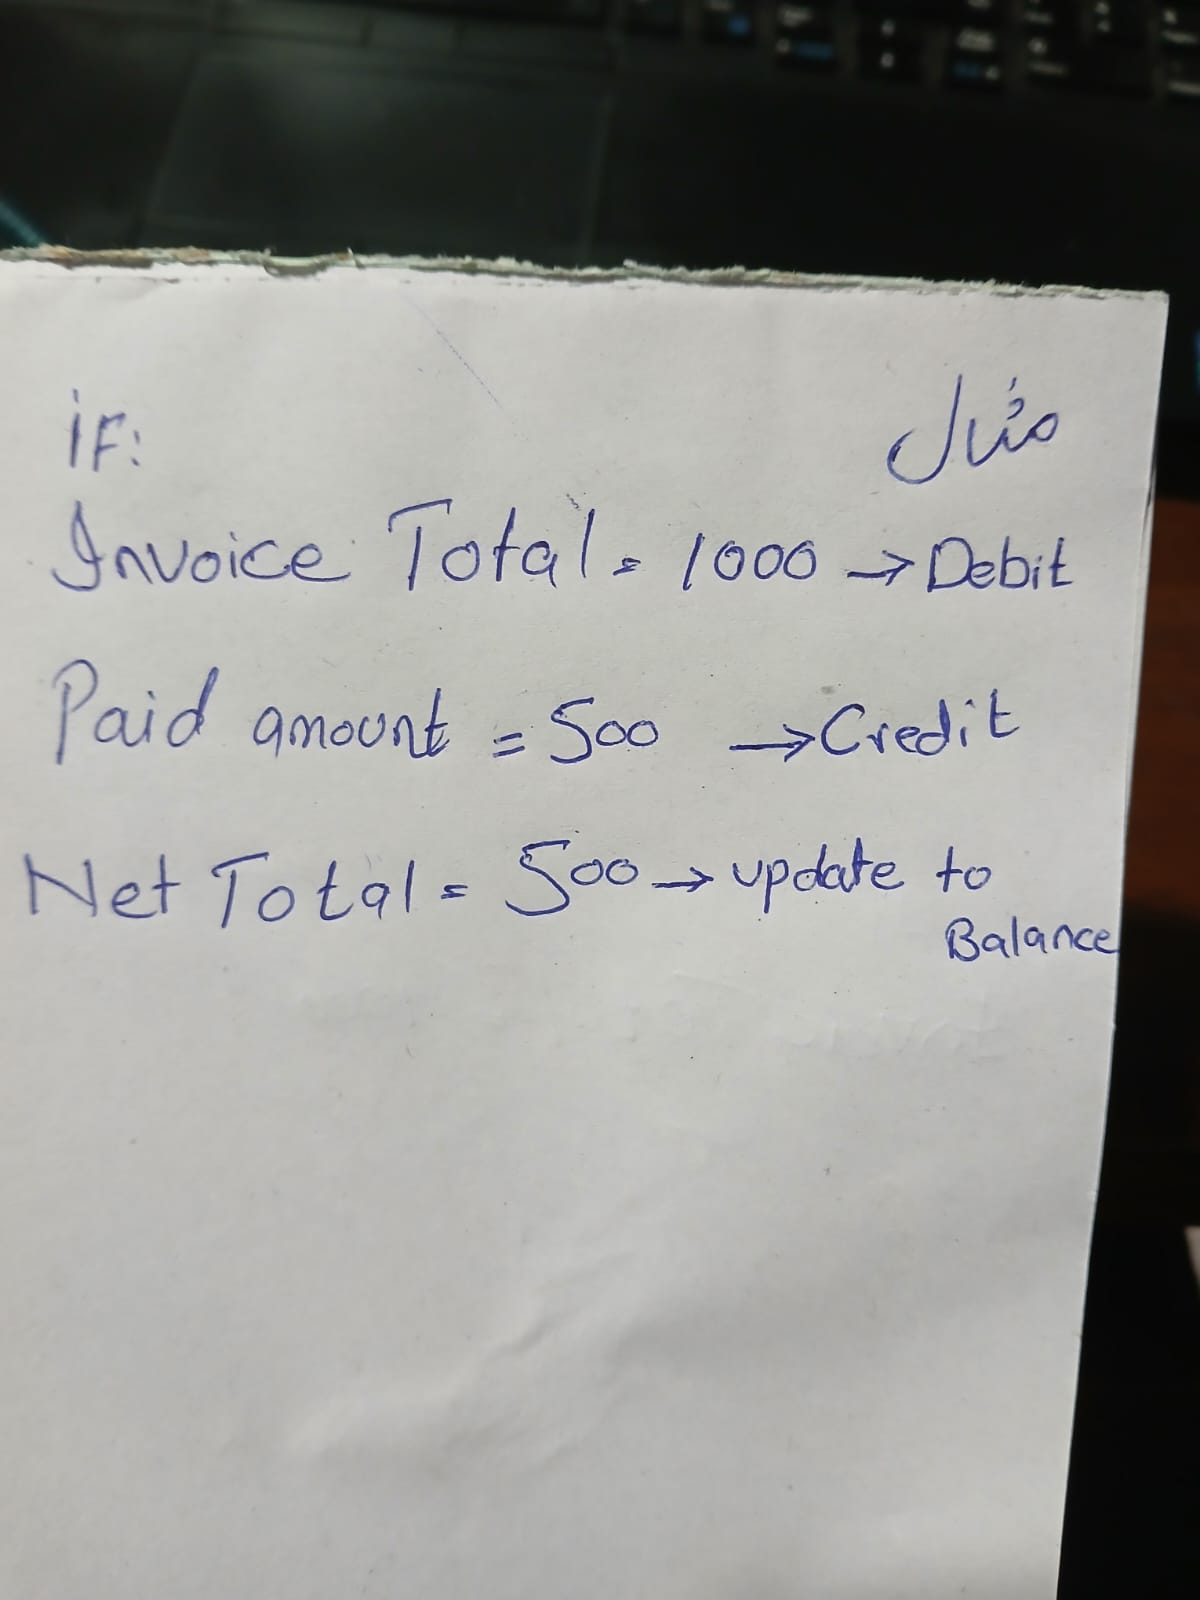 مثال
iF:
Invoice Total = 1000 → Debit
Paid amount = 500 → Credit
Net Total = 500 → update to
Balance